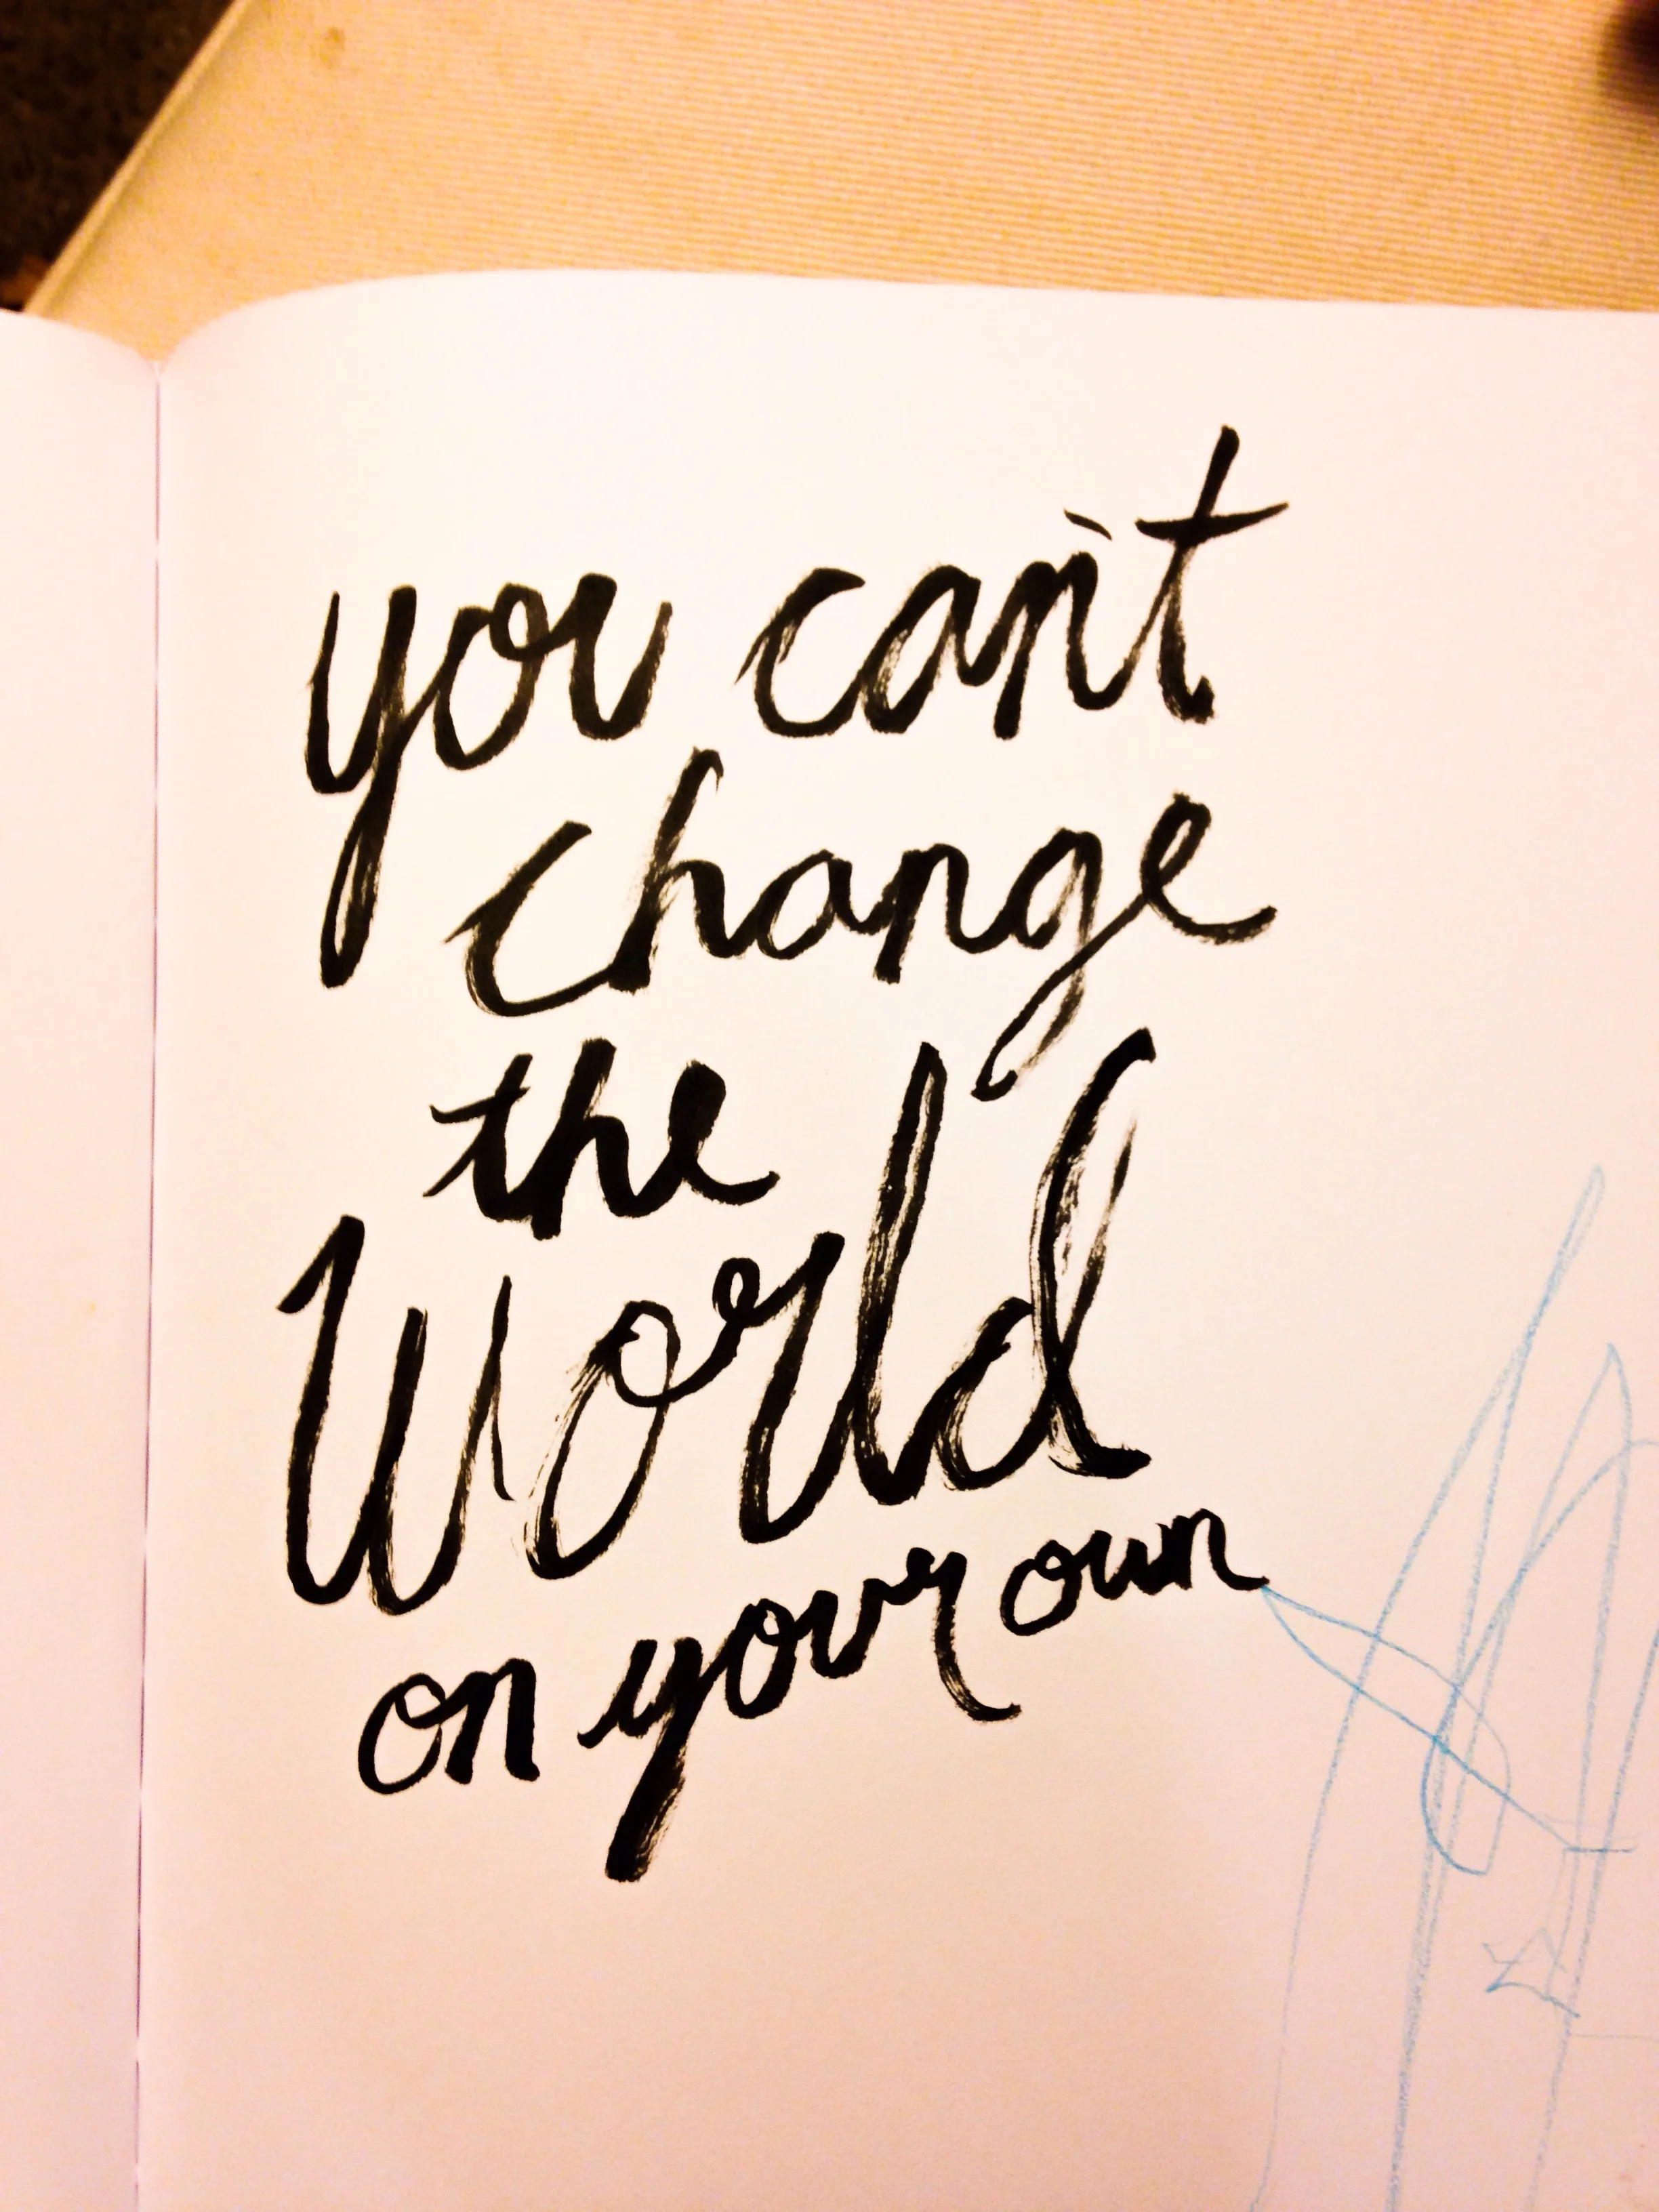 you can't
change
the
World
on your own